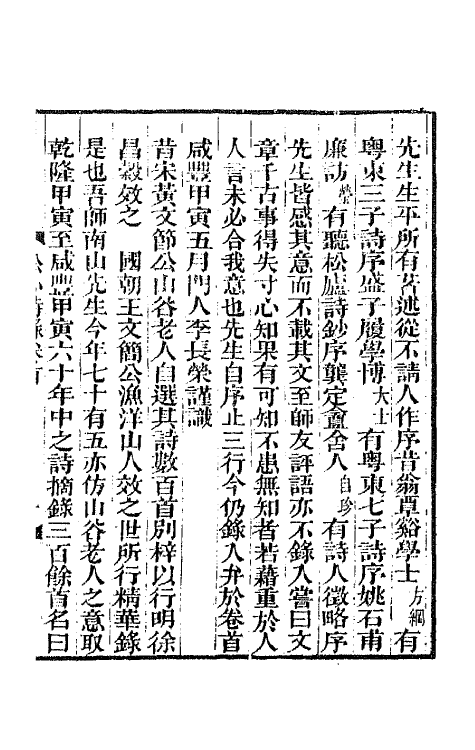 先生生平所有著述從不請人作序昔翁覃谿學士方綱有
粵東三子詩序盛子履學博大士有粵東七子詩序姚石甫
廉訪瑩有聽松廬詩鈔序龔定盦舍人自珍有詩人徵略序
先生皆感其意而不載其文至師友評語亦不錄入嘗曰文
章千古事得失寸心知果有可知不患無知者若藉重於人
人言未必合我意也先生自序止三行今仍錄入弁於卷首
咸豐甲寅五月門人李長榮謹識
昔宋黃文節公山谷老人自選其詩數百首別梓以行明徐
昌穀效之　國朝王文簡公漁洋山人效之世所行精華錄
是也吾師南山先生今年七十有五亦仿山谷老人之意取
乾隆甲寅至咸豐甲寅六十年中之詩摘錄三百餘首名曰